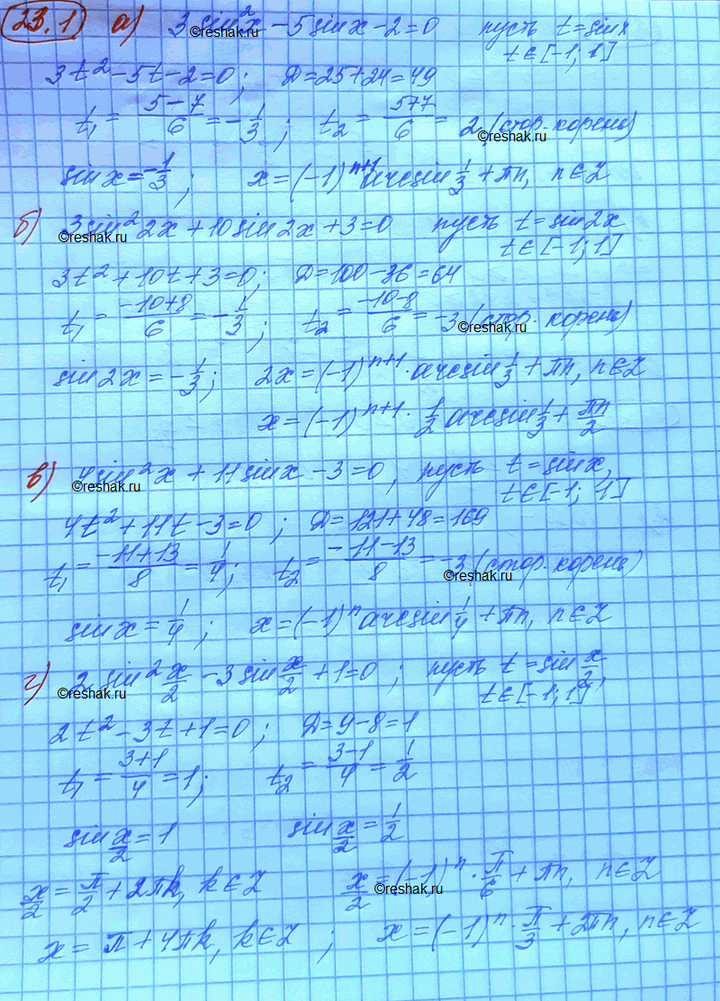 23.1 а) 3 sin²x - 5 sin x - 2 = 0 пусть t = sin x
t ∈ [-1; 1]
3t² - 5t - 2 = 0; D = 25 + 24 = 49
t₁ = (5 - 7)/6 = -1/3; t₂ = (5+7)/6 = 2 (стор. корень)
sin x = -1/3; x = (-1)ⁿ⁺¹ arcsin 1/3 + πn, n ∈ Z
б) 3 sin² 2x + 10 sin 2x + 3 = 0 пусть t = sin 2x
t ∈ [-1; 1]
3t² + 10t + 3 = 0; D = 100 - 36 = 64
t₁ = (-10+8)/6 = -1/3; t₂ = (-10-8)/6 = -3 (стор. корень)
sin 2x = -1/3; 2x = (-1)ⁿ⁺¹ · arcsin 1/3 + πn, n ∈ Z
x = (-1)ⁿ⁺¹ · 1/2 arcsin 1/3 + πn/2
в) 4 sin²x + 11 sin x - 3 = 0, пусть t = sin x,
t ∈ [-1; 1]
4t² + 11t - 3 = 0; D = 121 + 48 = 169
t₁ = (-11+13)/8 = 1/4; t₂ = (-11-13)/8 = -3 (стор. корень)
sin x = 1/4; x = (-1)ⁿ arcsin 1/4 + πn, n ∈ Z
г) 2 sin² x/2 - 3 sin x/2 + 1 = 0; пусть t = sin x/2,
t ∈ [-1; 1]
2t² - 3t + 1 = 0; D = 9 - 8 = 1
t₁ = (3+1)/4 = 1; t₂ = (3-1)/4 = 1/2
sin x/2 = 1 sin x/2 = 1/2
x/2 = π/2 + 2πk, k ∈ Z x/2 = (-1)ⁿ · π/6 + πn, n ∈ Z
x = π + 4πk, k ∈ Z; x = (-1)ⁿ · π/3 + 2πn, n ∈ Z
©reshak.ru
©reshak.ru
©reshak.ru
©reshak.ru
©reshak.ru
©reshak.ru
©reshak.ru
©reshak.ru